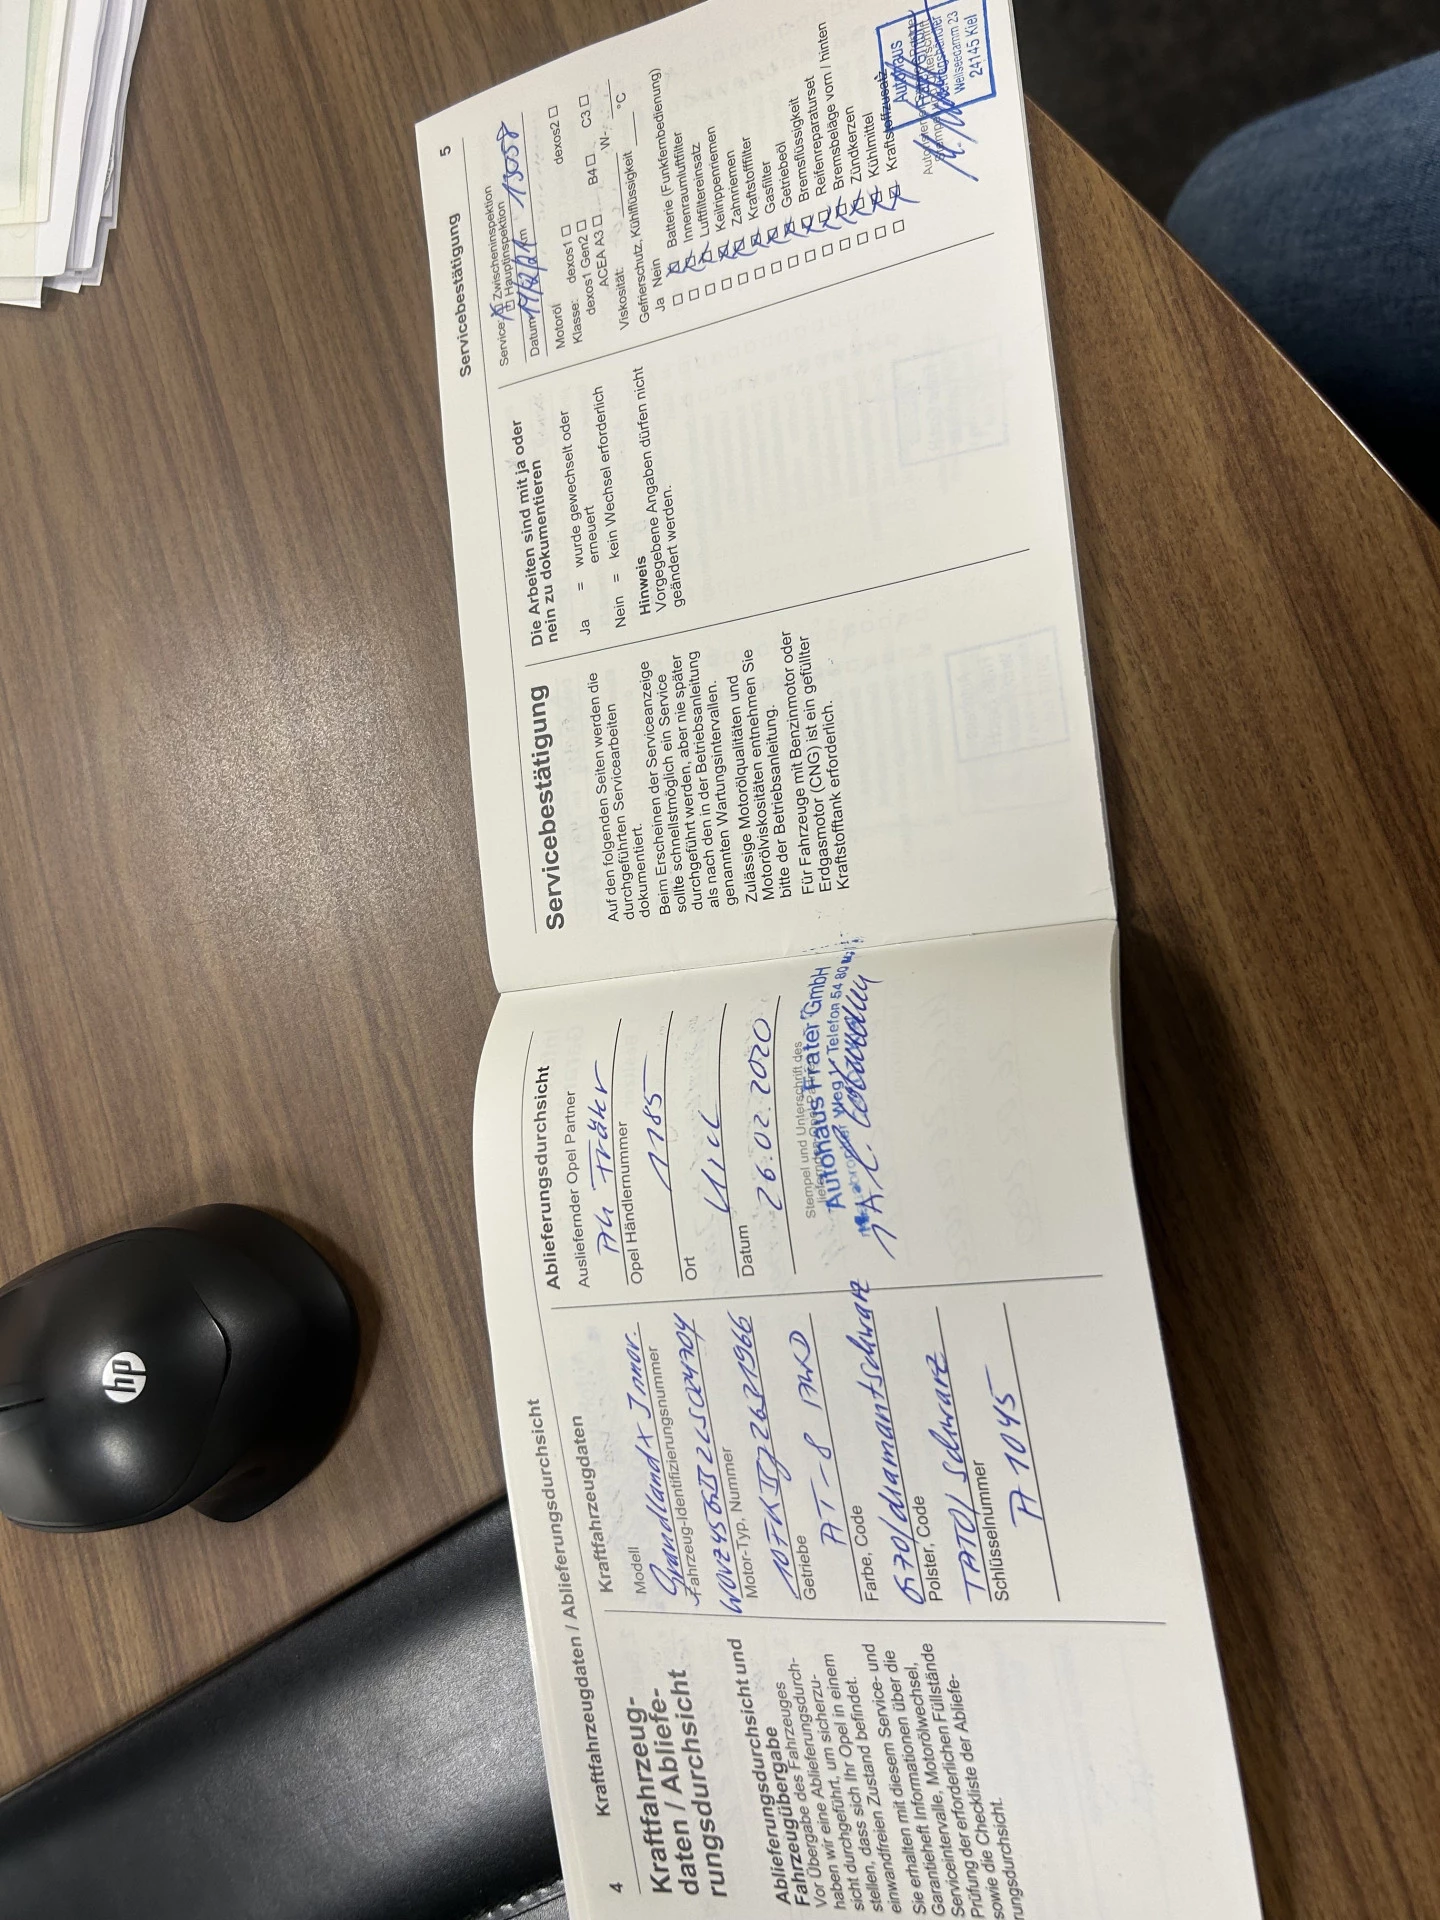 4
Kraftfahrzeugdaten / Ablieferungsdurchsicht
Kraftfahrzeug-
daten / Abliefe-
rungsdurchsicht
Ablieferungsdurchsicht und
Fahrzeugübergabe
Vor Übergabe des Fahrzeuges
haben wir eine Ablieferungsdurch-
sicht durchgeführt, um sicherzu-
stellen, dass sich Ihr Opel in einem
einwandfreien Zustand befindet.
Sie erhalten mit diesem Service- und
Garantieheft Informationen über die
Serviceintervalle, Motorölwechsel,
Prüfung der erforderlichen Füllstände
sowie die Checkliste der Abliefe-
rungsdurchsicht.
Kraftfahrzeugdaten
Modell
Grandland X Innov.
Fahrzeug-Identifizierungsnummer
Motor-Typ, Nummer
Getriebe
AT-8
Farbe, Code
G70/diamantschwarz
Polster, Code
TATO/ schwarz
Schlüsselnummer
A 1045
Ablieferungsdurchsicht
Ausliefernder Opel Partner
AH Fräter
Opel Händlernummer
1185
Ort
Kiel
Datum
26.02.2020
Stempel und Unterschrift des
Autohaus Frater GmbH
Weg Telefon 54 80
Servicebestätigung
5
Servicebestätigung
Auf den folgenden Seiten werden die
durchgeführten Servicearbeiten
dokumentiert.
Beim Erscheinen der Serviceanzeige
sollte schnellstmöglich ein Service
durchgeführt werden, aber nie später
als nach den in der Betriebsanleitung
genannten Wartungsintervallen.
Zulässige Motorölqualitäten und
Motorölviskositäten entnehmen Sie
bitte der Betriebsanleitung.
Für Fahrzeuge mit Benzinmotor oder
Erdgasmotor (CNG) ist ein gefüllter
Kraftstofftank erforderlich.
Die Arbeiten sind mit ja oder
nein zu dokumentieren
Ja = wurde gewechselt oder
erneuert
Nein = kein Wechsel erforderlich
Hinweis
Vorgegebene Angaben dürfen nicht
geändert werden.
Service: Zwischeninspektion
Hauptinspektion
Datum km 13058
Motoröl
Klasse: dexos1 dexos2
dexos1 Gen2
ACEA A3 B4 C3
Viskosität: W-
Gefrierschutz, Kühlflüssigkeit °C
Ja Nein
Batterie (Funkfernbedienung)
Innenraumluftfilter
Luftfiltereinsatz
Keilrippenriemen
Zahnriemen
Kraftstofffilter
Gasfilter
Getriebeöl
Bremsflüssigkeit
Reifenreparaturset
Bremsbeläge vorn / hinten
Zündkerzen
Kühlmittel
Kraftstoffzusatz
Autohaus
Wellseedamm 23
24145 Kiel
hp